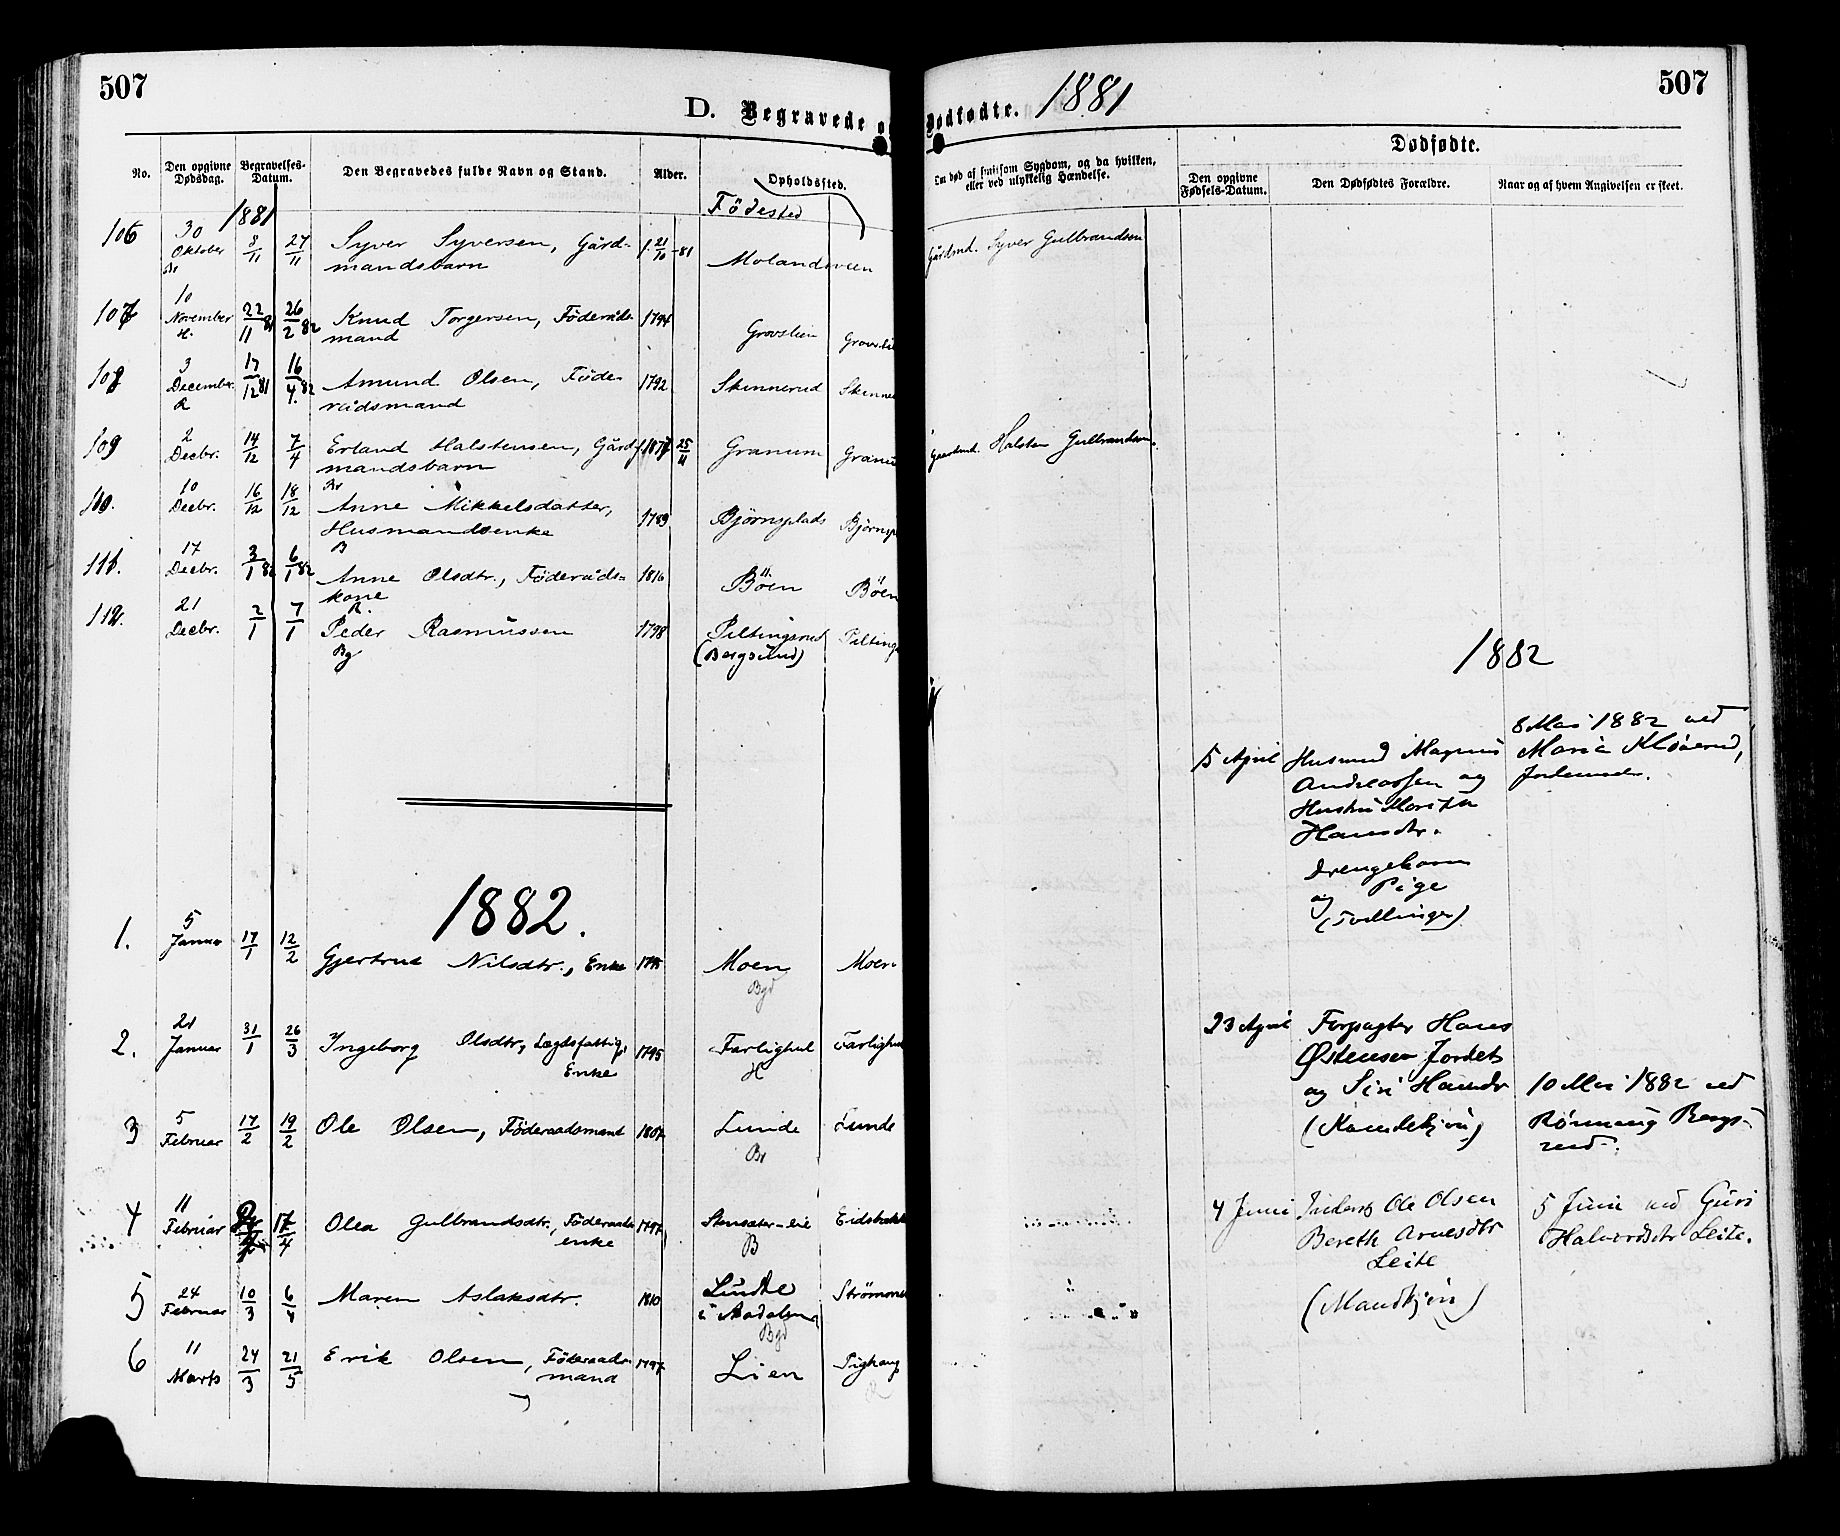 507
D. Begravede og
No.
Den opgivne Dødsdag.
Begravelses-Datum.
Den Begravedes fulde Navn og Stand.
Alder.
Opholdssted.
Födested
1881
106 30 Oktober Br 8/11 27/11 Syver Syversen, Gård- f. 21/10 -81 Molandsveen
mandsbarn
107 10 November H. 22/11 81 26/2 82 Knud Torgersen, Föderåds- 1794 Grovslien
mand
108 3 December R 17/12 81 16/4 82 Amund Olsen, Föde- 1792 Skinnerud
rådsmand
109 2 Decbr. 14/12 7/4 Erland Halstensen, Gård- 25/11 Granum
mandsbarn
110. 10 Decbr. 16/12 18/12 Anne Mikkelsdatter, 1789 Björnsplads
Husmandsenke
B
111. 17 Decbr. 3/1 82 6/1 82 Anne Olsdtr., Föderåds- 1816 Böen Böen
kone
R.
112. 21 Decbr. 2/1 7/1 Peder Rasmussen 1798
Bg (Bergsund)
1882.
1. 5 Januar 17/1 12/2 Gjertrud Nilsdtr., Enke Moen Moen
Bgd
2. 21 Januar 31/1 26/3 Ingeborg Olsdtr, Lægdsfattig, 1795 Farlighul
Enke H
3 5 Februar 17/2 19/2 Ole Olsen, Föderaadsmand 1807 Lunde Lunde
Br
4 11 Februar 17/4 Olea Gulbrandsdtr., Föderaads- 1797
enke B
5 24 Februar 10/3 6/4 Maren Aslaksdtr. 1810 Lunde
i Aadalen
Bgd
6 11 Marts 24/3 21/5 Erik Olsen, Föderaads- 1797 Lien
mand
507
Dødfødte. 1881
Om død af smitsom Sygdom, og da hvilken,
eller ved ulykkelig Hændelse.
Dødfødte.
Den opgivne Fødsels-Datum.
Den Dødfødtes Forældre.
Naar og af hvem Angivelsen er skeet.
Gårdmd. Syver Gulbrandsen
Gaardmd. Halsten Gulbrandsen.
1882
5 April Husmd Magnus
Andreassen og
Hustru
Hansdtr.
Drengebarn
og Pige
(Tvillinger)
8 Mai 1882 ved
Maria
Jordemoder.
23 April Forpagter Hans
Østensen Jordet
og Siri Hansdr
(Kvindekjøn)
10 Mai 1882 ved
Rönnaug Bergs-
rud.
4 Juni Inderst Ole Olsen
Bereth Arnesdtr
Leite
(Mandkjön)
5 Juni ved Guri
Halvordsdtr Leite.